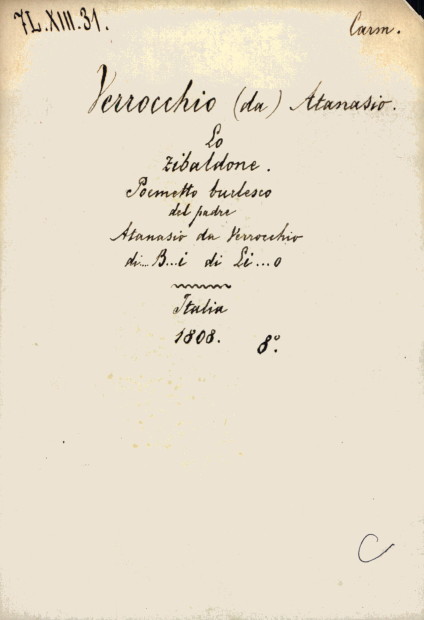 7L.XIII.31.
Carm.
Verrocchio (da) Atanasio.
Lo
zibaldone.
Poemetto burlesco
del padre
Atanasio da Verrocchio
di.... B...i di Li...o
Italia
1808. 8º.
C